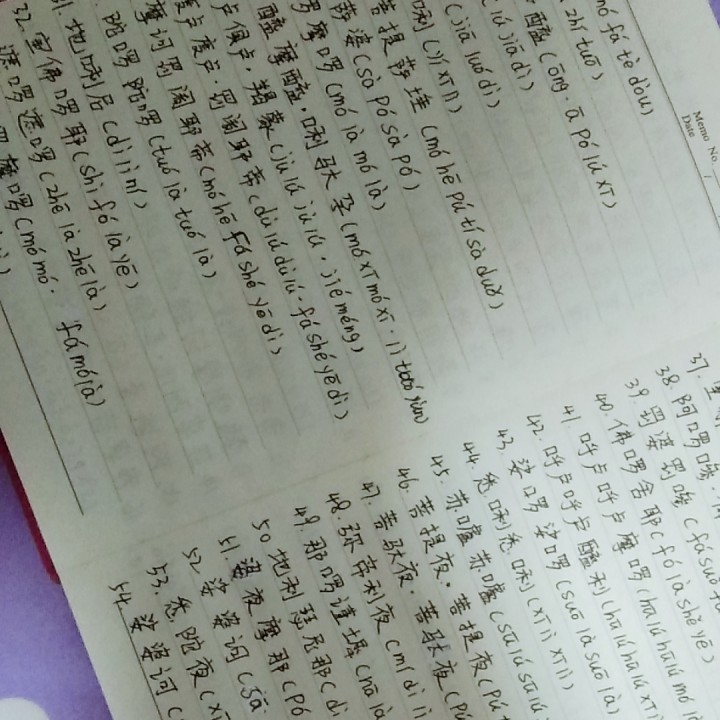 Memo No.
Date
mó fá tè dòu)
zhī tuō)
醯(ōng·ā pó lú xī)
lú jiā dì)
(jiā luó dì)
唎(yí xī lì)
菩提萨埵(mó hē pú tí sà duǒ)
萨婆(sà pó sà pó)
摩啰(mó là mó là)
醯摩醯·唎驮孕(mó xī mó xī·lì tuó yùn)
卢俱卢·羯蒙(jù lú jù lú·jié méng)
度卢度卢·罚阇耶帝(dù lú dù lú·fá shé yē dì)
摩诃罚阇耶帝(mó hē fá shé yē dì)
陀啰陀啰(tuó là tuó là)
31.地唎尼(dì lì ní)
32.室佛啰耶(shì fó là yē)
遮啰遮啰(zhē là zhē là)
摩啰(mó mó· fá mó là)
37.
38.阿啰嘇
39.罚娑罚嘇(fá suō
40.佛啰舍耶(fó là shě yē)
41.呼卢呼卢摩啰(hū lú hū lú mó là
42.呼卢呼卢醯利(hū lú hū lú xī
43.娑啰娑啰(suō là suō là)
44.悉唎悉唎(xī lì xī lì)
45.苏嚧苏嚧(sū lú sū lú
46.菩提夜·菩提夜(pú tí
47.菩驮夜·菩驮夜(pú
48.弥帝利夜(mí dì lì
49.那啰谨墀(nā là
50.地利瑟尼那(dì
51.婆夜摩那(pó
52.娑婆诃(sā
53.悉陀夜(xī
54.娑婆诃(